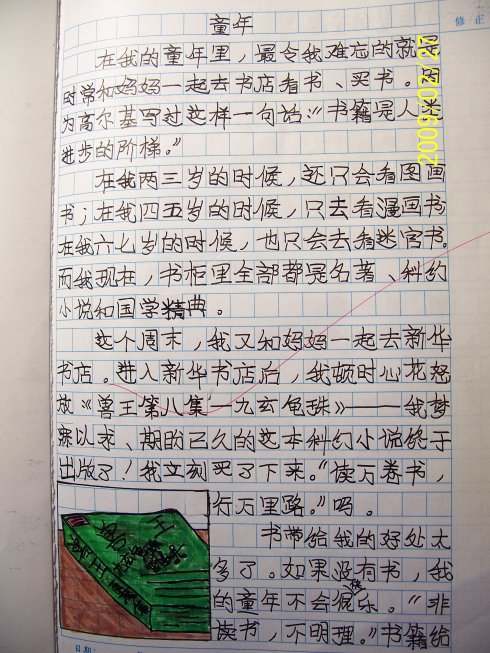 修正
童年
在我的童年里，最令我难忘的就是
时常和妈妈一起去书店看书、买书。因
为高尔基写过这样一句话："书籍是人类
进步的阶梯。"
在我两三岁的时候，还只会看图画
书；在我四五岁的时候，只去看漫画书
在我六七岁的时候，也只会去看迷宫书。
而我现在，书柜里全部都是名著、科幻
小说和国学精典。
这个周末，我又和妈妈一起去新华
书店。进入新华书店后，我顿时心花怒
放《兽王第八集——九玄龟珠》——我梦
寐以求、期盼已久的这本科幻小说终于
出版了！我立刻买了下来。"读万卷书，
行万里路。"吗。
书带给我的好处太
多了。如果没有书，我
的童年不会快乐。"非
读书，不明理。"书籍给
日期